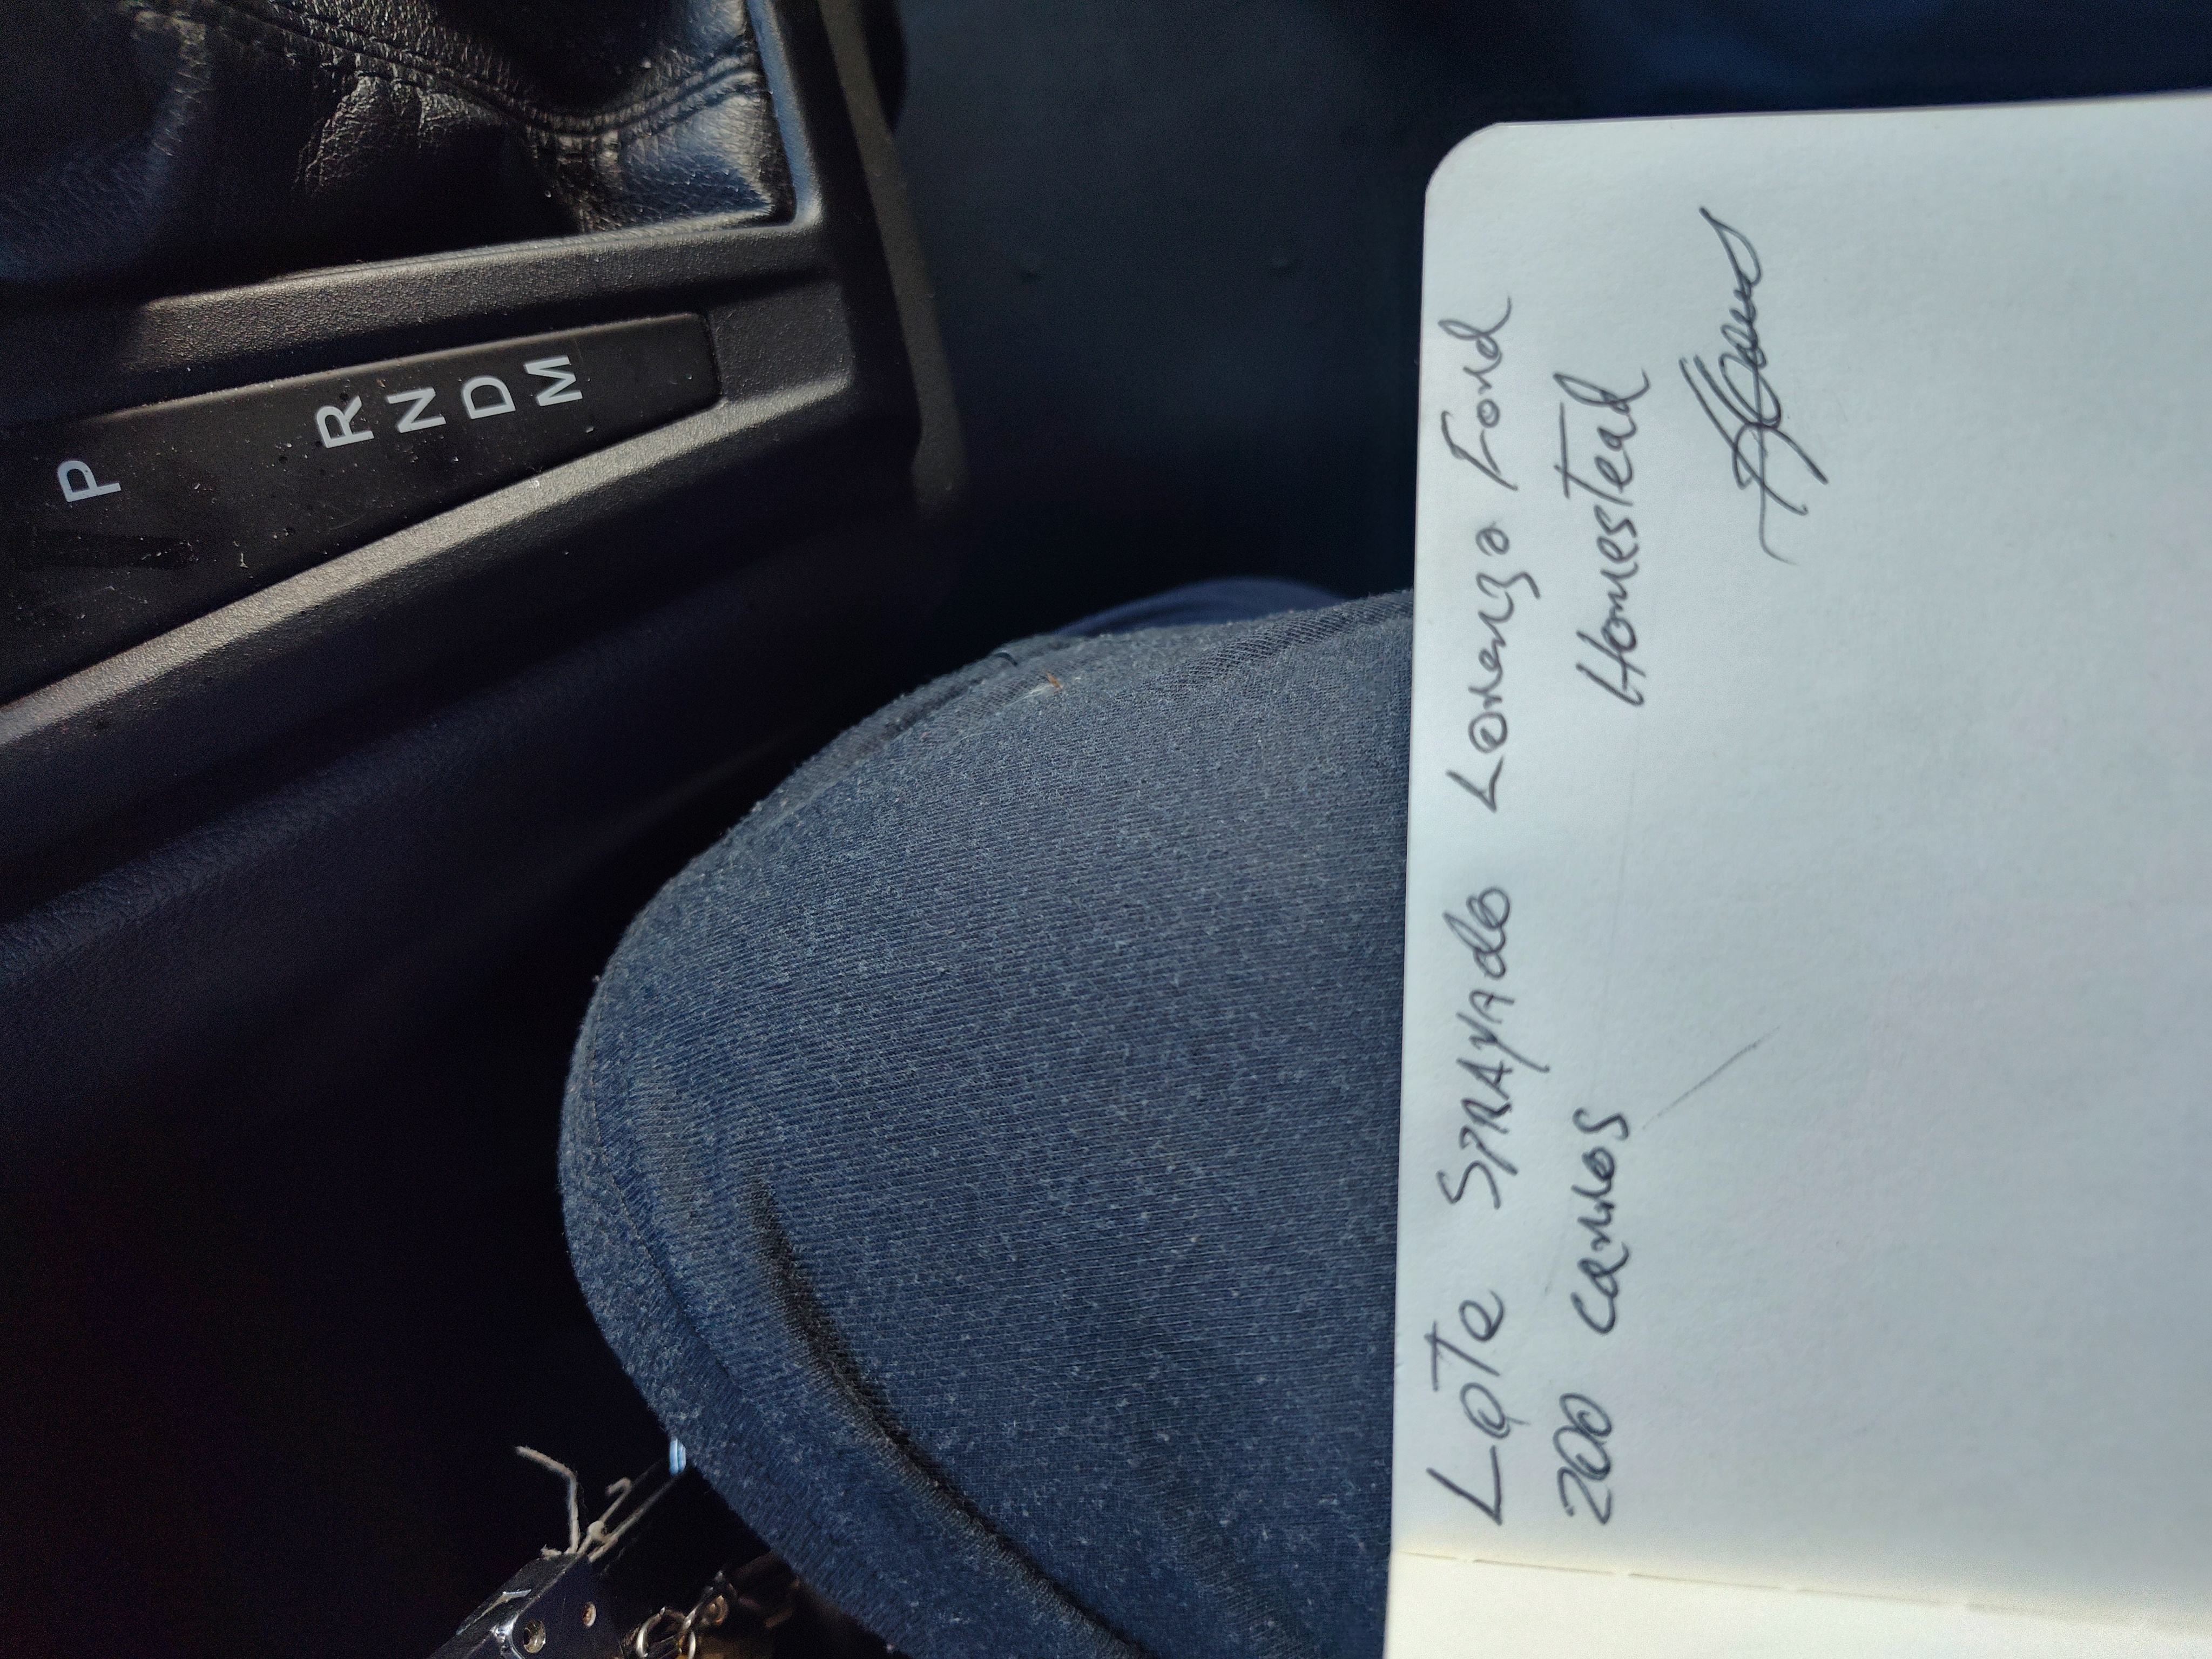 P
R
N
D
M
Lote SPRAYAdo Lorenzo Ford
200 carros Homestead